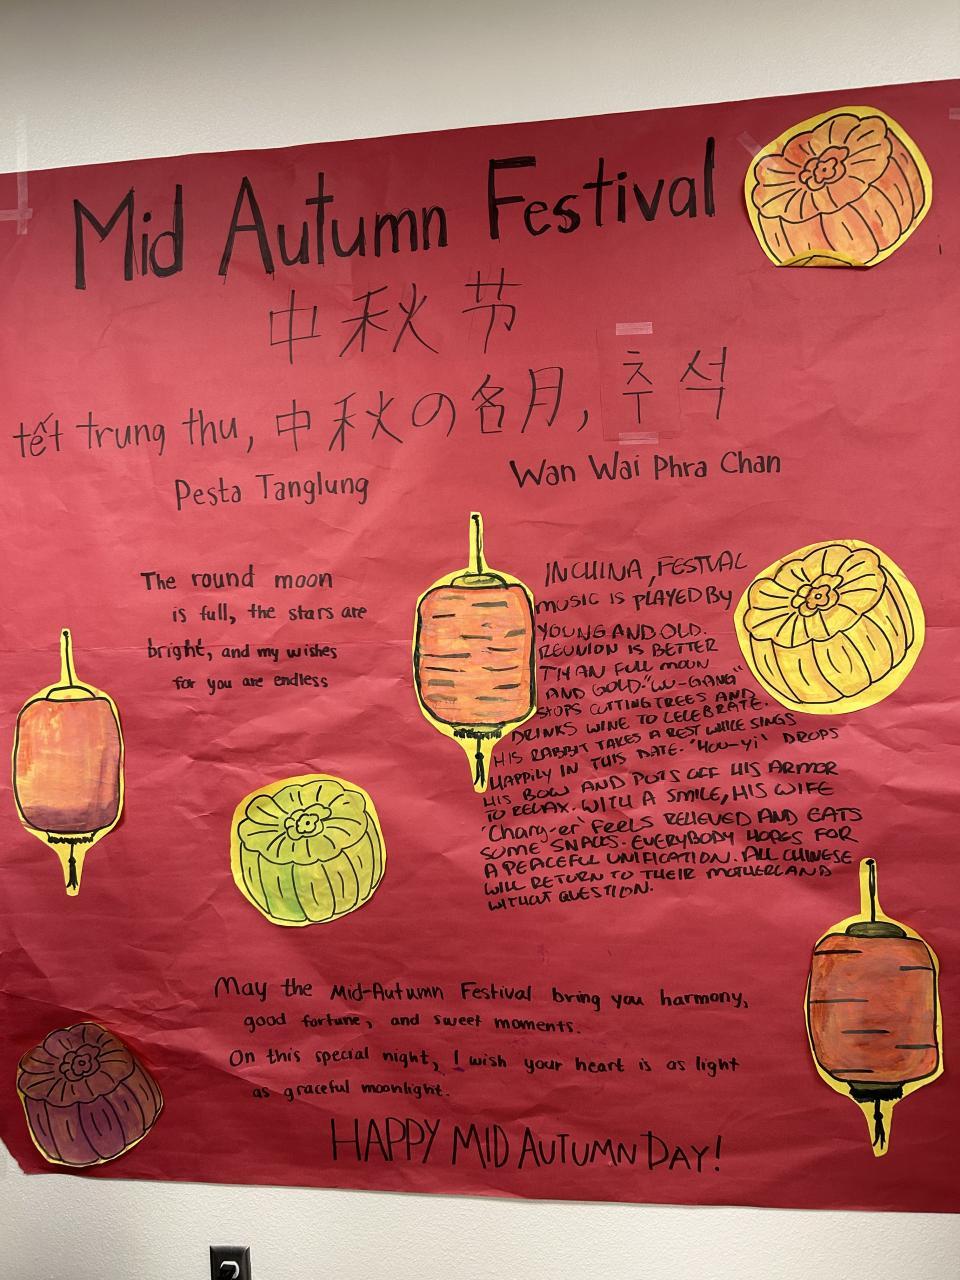 Mid Autumn Festival
中秋节
tết trung thu, 中秋の各月, 추석
Pesta Tanglung
Wan Wai Phra Chan
The round moon
is full, the stars are
bright, and my wishes
for you are endless
IN CHINA, FESTVAL
MUSIC IS PLAYED BY
YOUNG AND OLD.
REUNION IS BETTER
THAN FULL MOON
AND GOLD. "WU-GANG"
STOPS CUTTING TREES AND
DRINKS WINE TO CELEBRATE.
HIS RABBIT TAKES A REST WHILE SINGS
HAPPILY IN THIS DATE. "HOU-Yi" DROPS
HIS BOW AND PUTS OFF HIS ARMOR
TO RELAX. WITH A SMILE, HIS WIFE
"Chang-er" FEELS RELIEVED AND EATS
SOME SNACKS. EVERYBODY HOPES FOR
A PEACEFUL UNIFICATION. ALL CHINESE
WILL RETURN TO THEIR MOTHERLAND
WITHOUT QUESTION.
May the Mid-Autumn Festival bring you harmony,
good fortune, and sweet moments.
On this special night, I wish your heart is as light
as graceful moonlight.
HAPPY MID AUTUMN DAY!